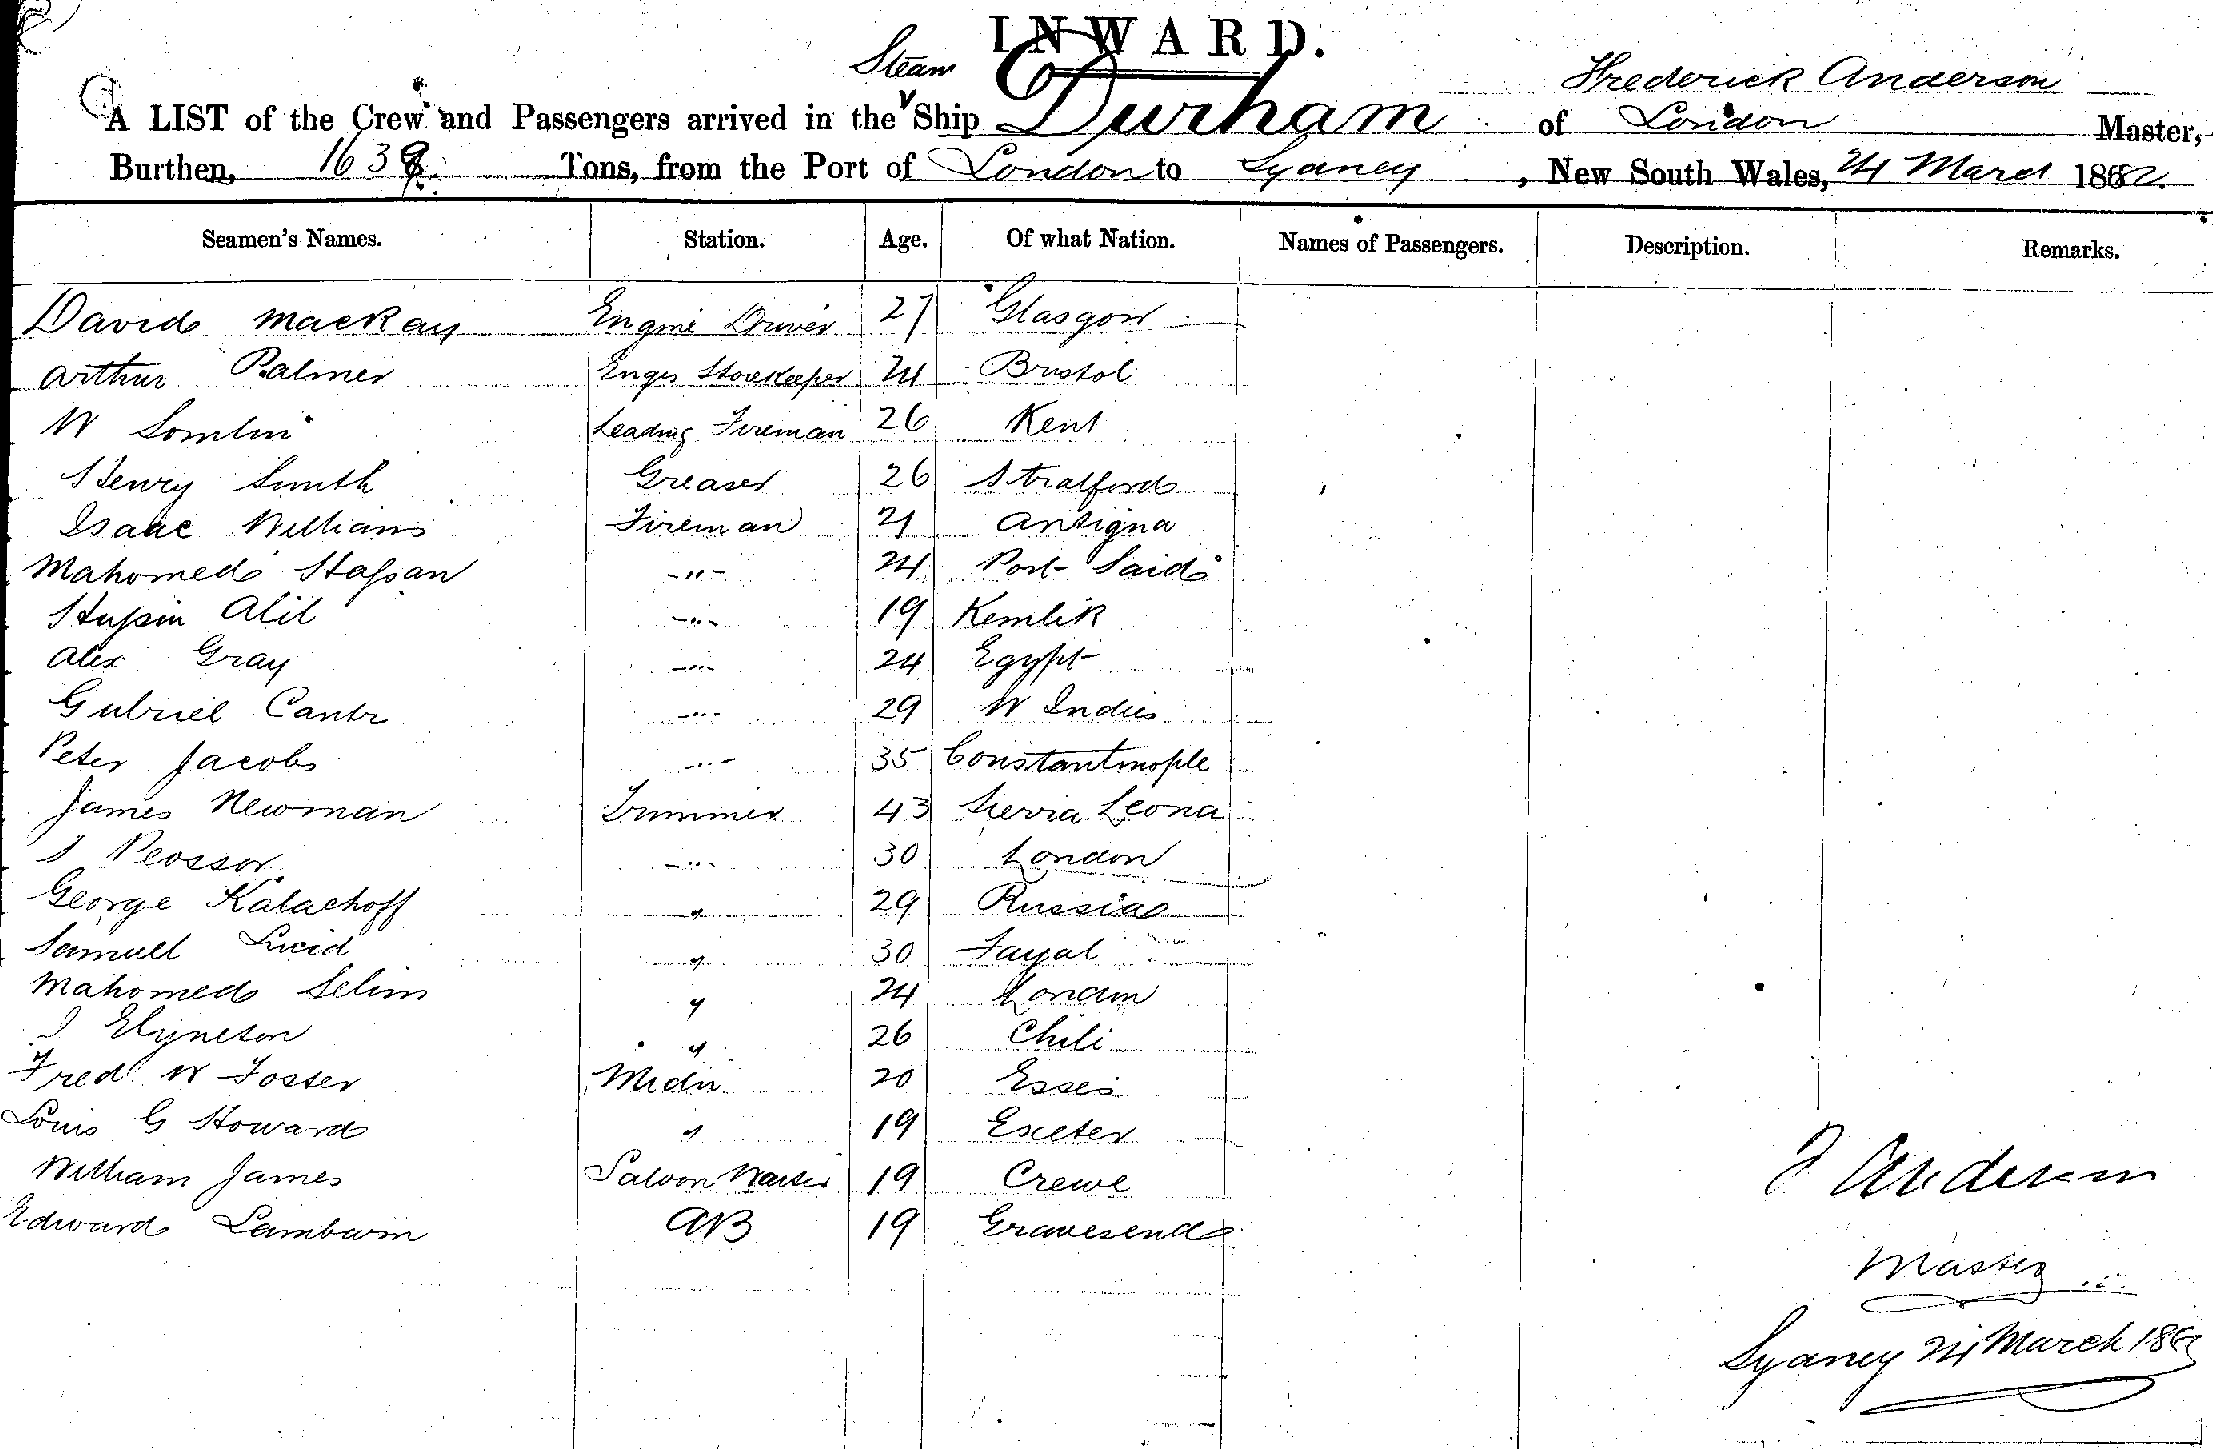 INWARD.
Steam
Frederick Anderson
A LIST of the Crew and Passengers arrived in the Ship Durham of London Master,
Burthen, 1639 Tons, from the Port of London to Sydney, New South Wales, 24 March 1882
Seamen's Names. Station. Age. Of what Nation. Names of Passengers. Description. Remarks.
David Mackay Engine Driver 27 Glasgow
Arthur Palmer Engrs Storekeeper 24 Bristol
W Leading Fireman 26 Kent
Henry Smith Greaser 26 Stratford
Isaac Williams Fireman 21 Antigua
Mahomed Hassan -"- 24 Port Said
Hussin Alil -"- 19 Kemlik
Alex Gray -"- 24 Egypt
Gabriel -"- 29 W Indies
Peter Jacobs -"- 35 Constantinople
James Newman Trimmer 43 Sierra Leona
-"- 30 London
George Kalachoff " 29 Russia
Samuel Lucid " 30 Fayal
Mahomed Selim " 24 London
" 26 Chili
Fred W Foster Midn 20 Essex
Louis G Howard " 19 Exeter
William James Saloon Waiter 19 Crewe
Edward 	AB 19 Gravesend
F Anderson
Master
Sydney 24 March 188